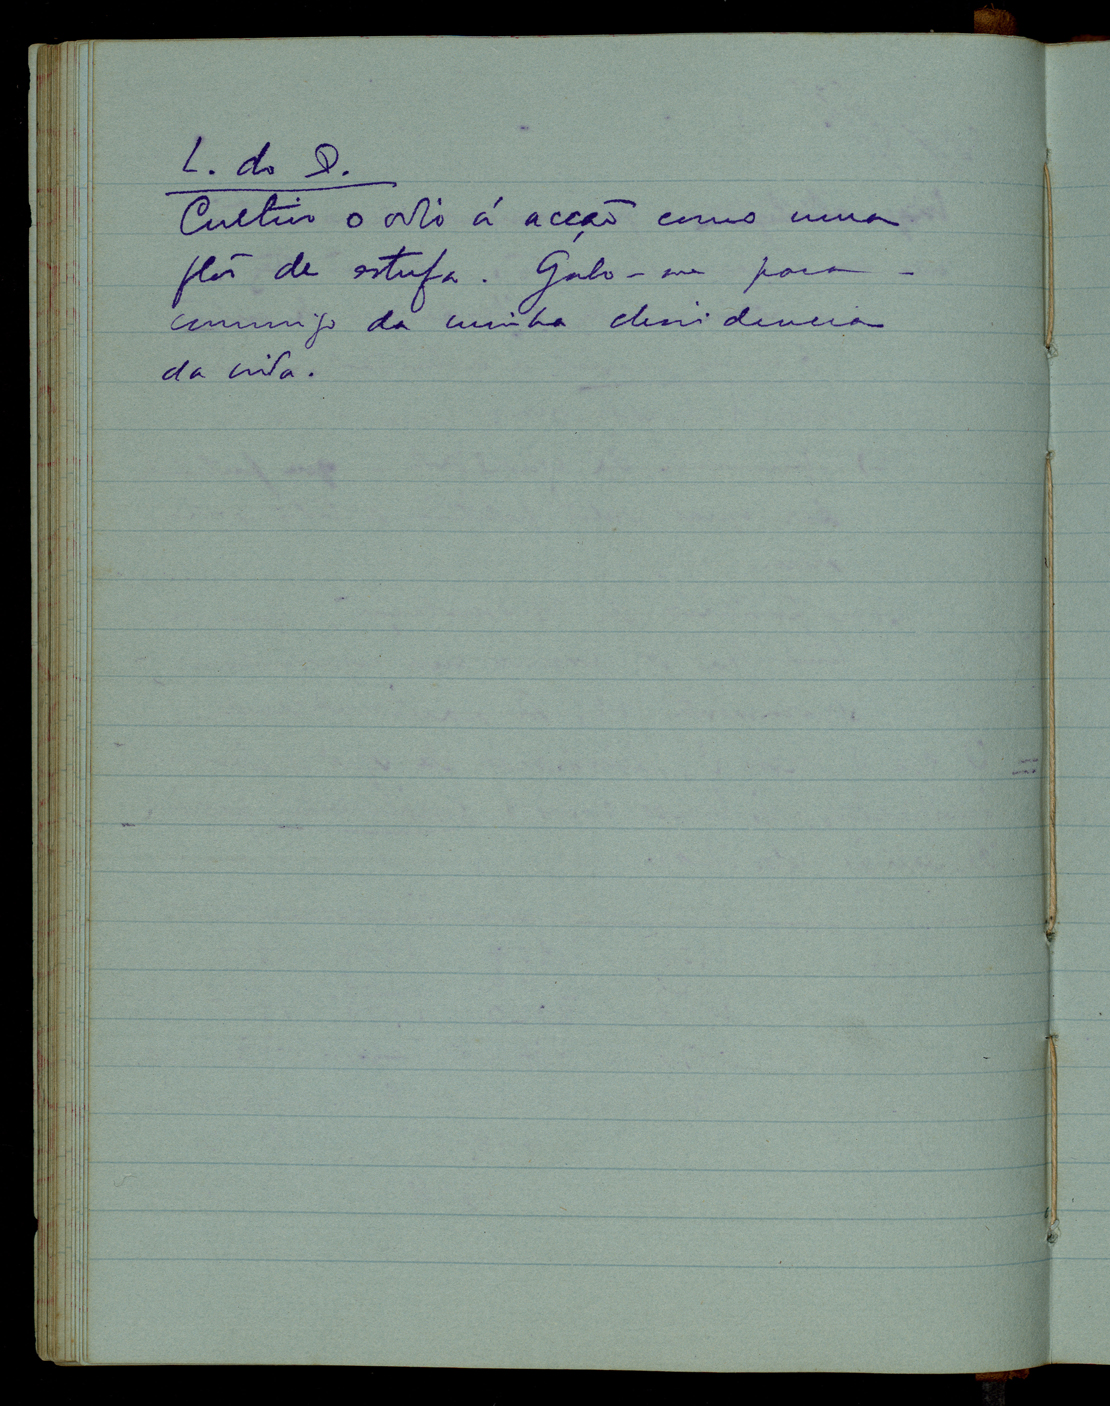 L. do D.
Cultivo o odio á acção como uma
flôr de estufa. Gabo-me para-
commigo da minha dissidencia
da vida.